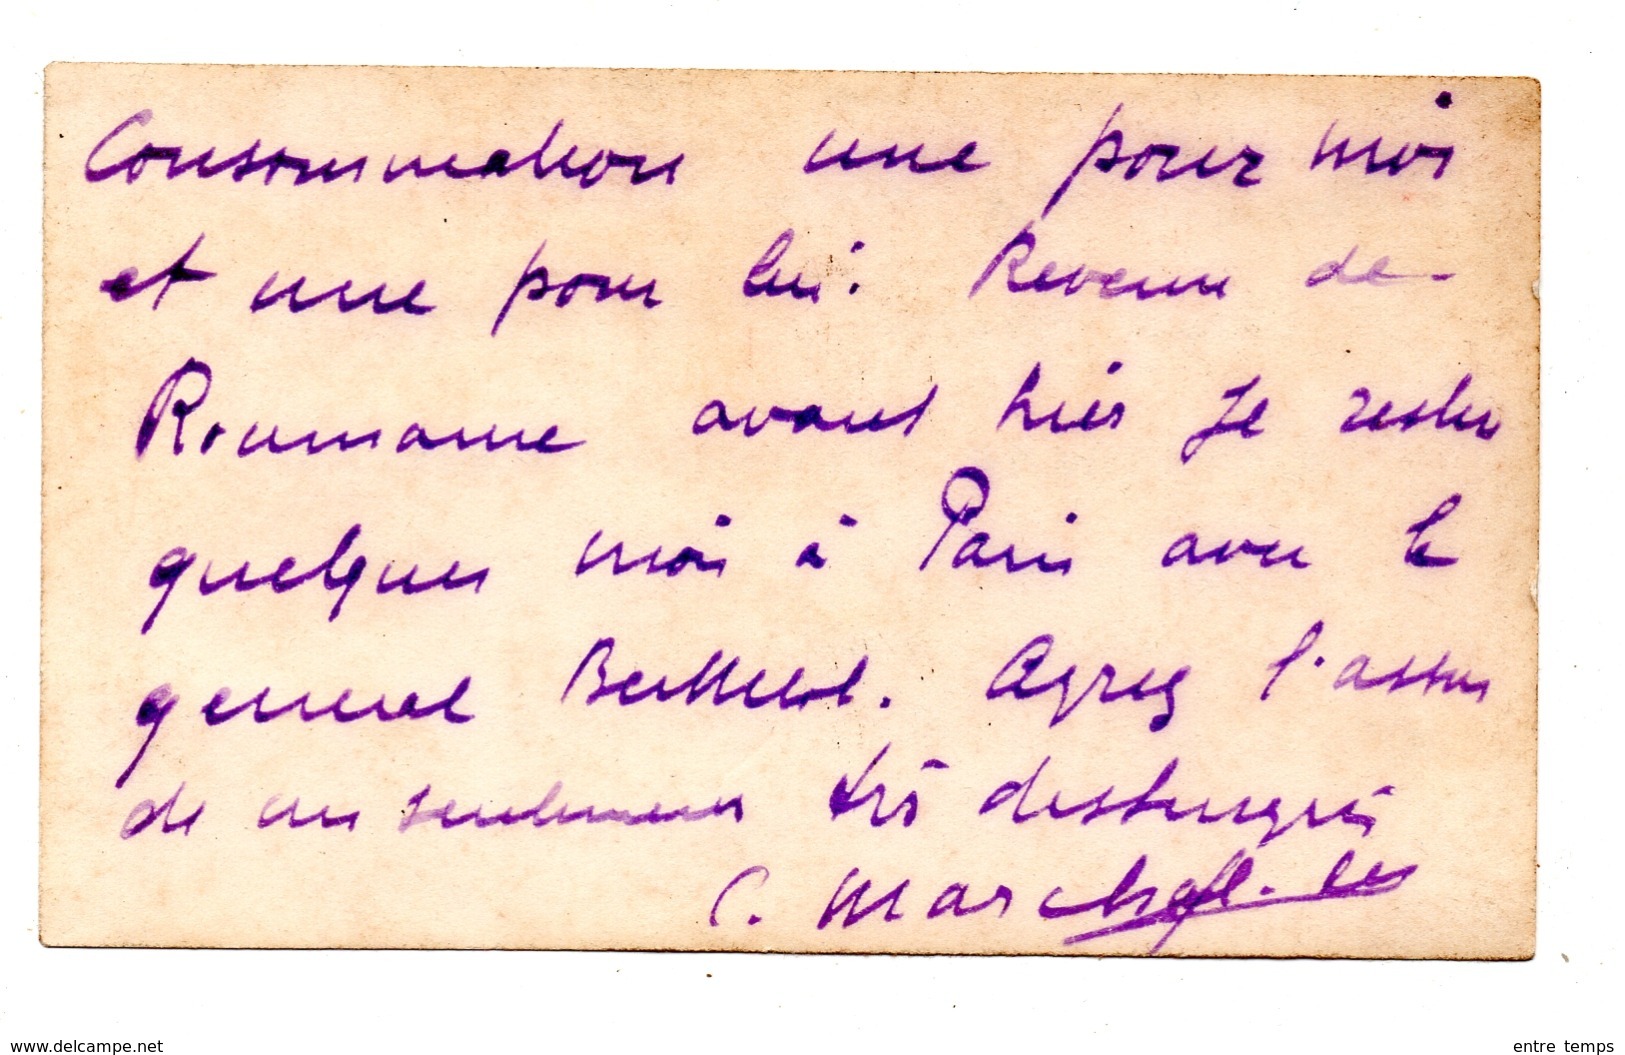 Consommation une pour moi
et une pour lui. Revenu de
Roumanie avant hier je reste
quelques mois à Paris avec le
general Berthelot. Agreez l'assur
de mes sentiments très distingués
C.
www.delcampe.net
entre temps